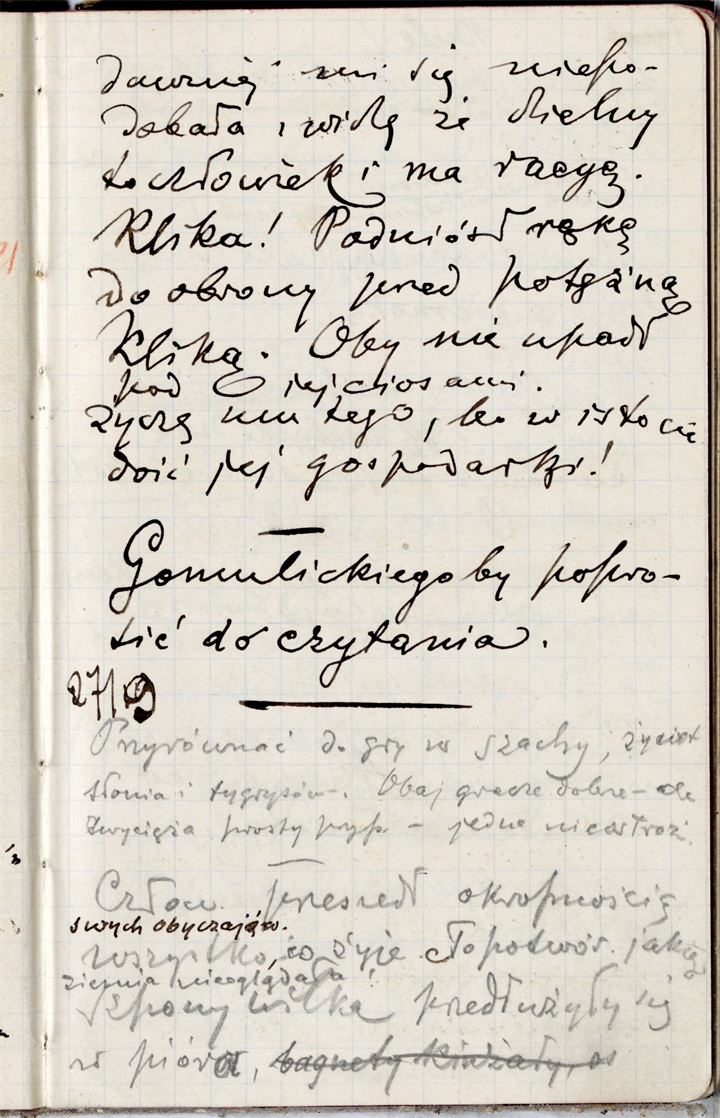 dawniej mi się niepo-
dobała i widzę że dzielny
to człowiek i ma racyę.
Klika! Podniósł rękę
do obrony przed potężną
Kliką. Oby nie upadł
pod jej ciosami.
Życzę mu tego, bo w istocie
dość jej gospodarki!
Gomulickiego by popro-
sić do czytania.
27/9
Przyrównać do gry w szachy, życie
słonia i tygrysów. Obaj gracze dobre – ale
zwycięża prosty – jedna
Człow. przeszedł okropnością
swych obyczajów.
wszystko, co żyje. To potwór jakiego
ziemia nieoglądała!
Szpony wilka przedłużyły się
w pióra, bagnety kindżały,